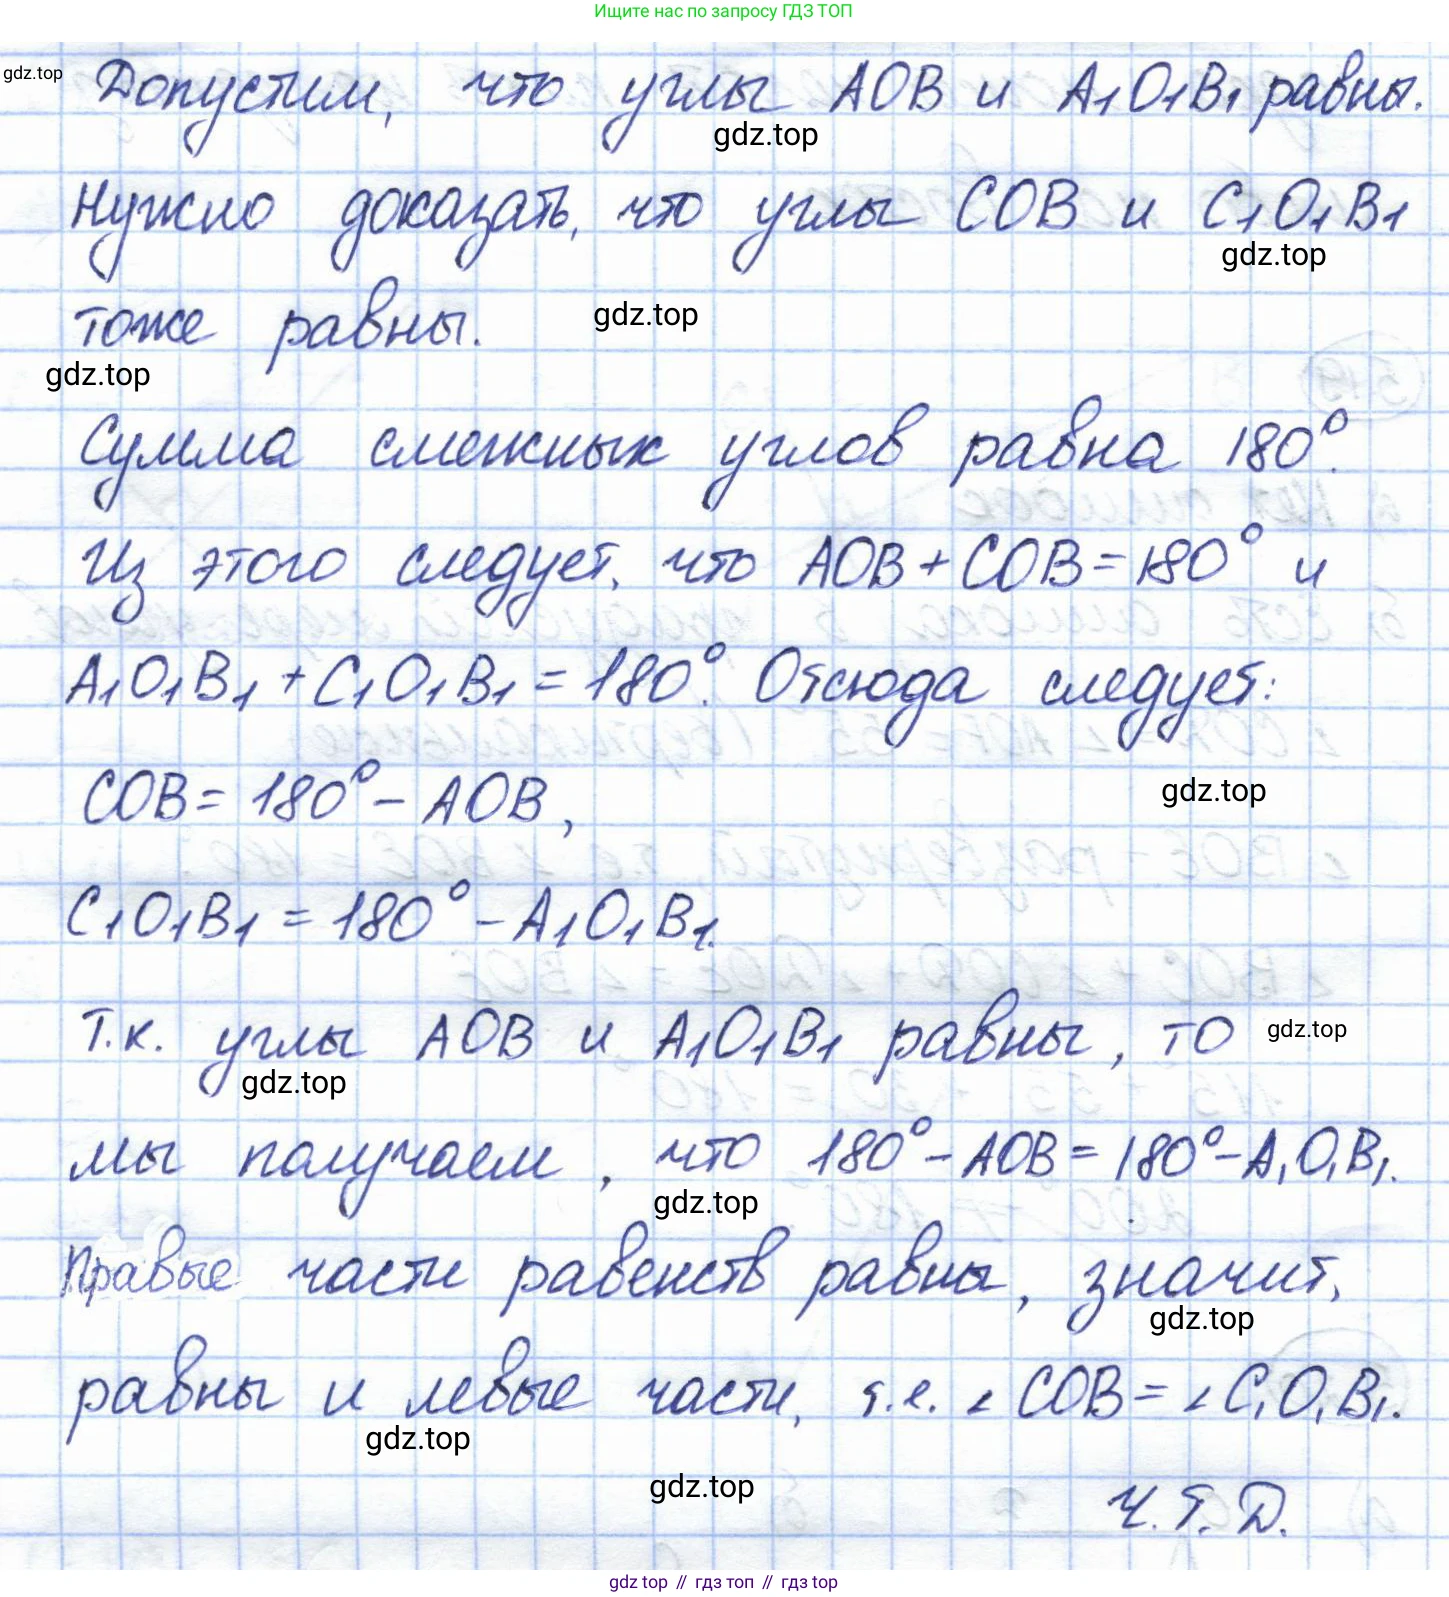 Ищите нас по запросу ГДЗ ТОП
gdz.top
Допустим, что углы AOB и A₁O₁B₁ равны.
gdz.top
Нужно доказать, что углы COB и C₁O₁B₁
gdz.top
тоже равны.
gdz.top
gdz.top
Сумма смежных углов равна 180°.
Из этого следует, что AOB + COB = 180° и
A₁O₁B₁ + C₁O₁B₁ = 180°. Отсюда следует:
COB = 180° – AOB,
gdz.top
C₁O₁B₁ = 180° – A₁O₁B₁.
Т.к. углы AOB и A₁O₁B₁ равны, то
gdz.top
gdz.top
мы получаем, что 180° – AOB = 180° – A₁O₁B₁.
gdz.top
Правые части равенств равны, значит,
gdz.top
равны и левые части, т.е. ∠COB = ∠C₁O₁B₁.
gdz.top
gdz.top
Ч.Т.Д.
gdz top // гдз топ // гдз top